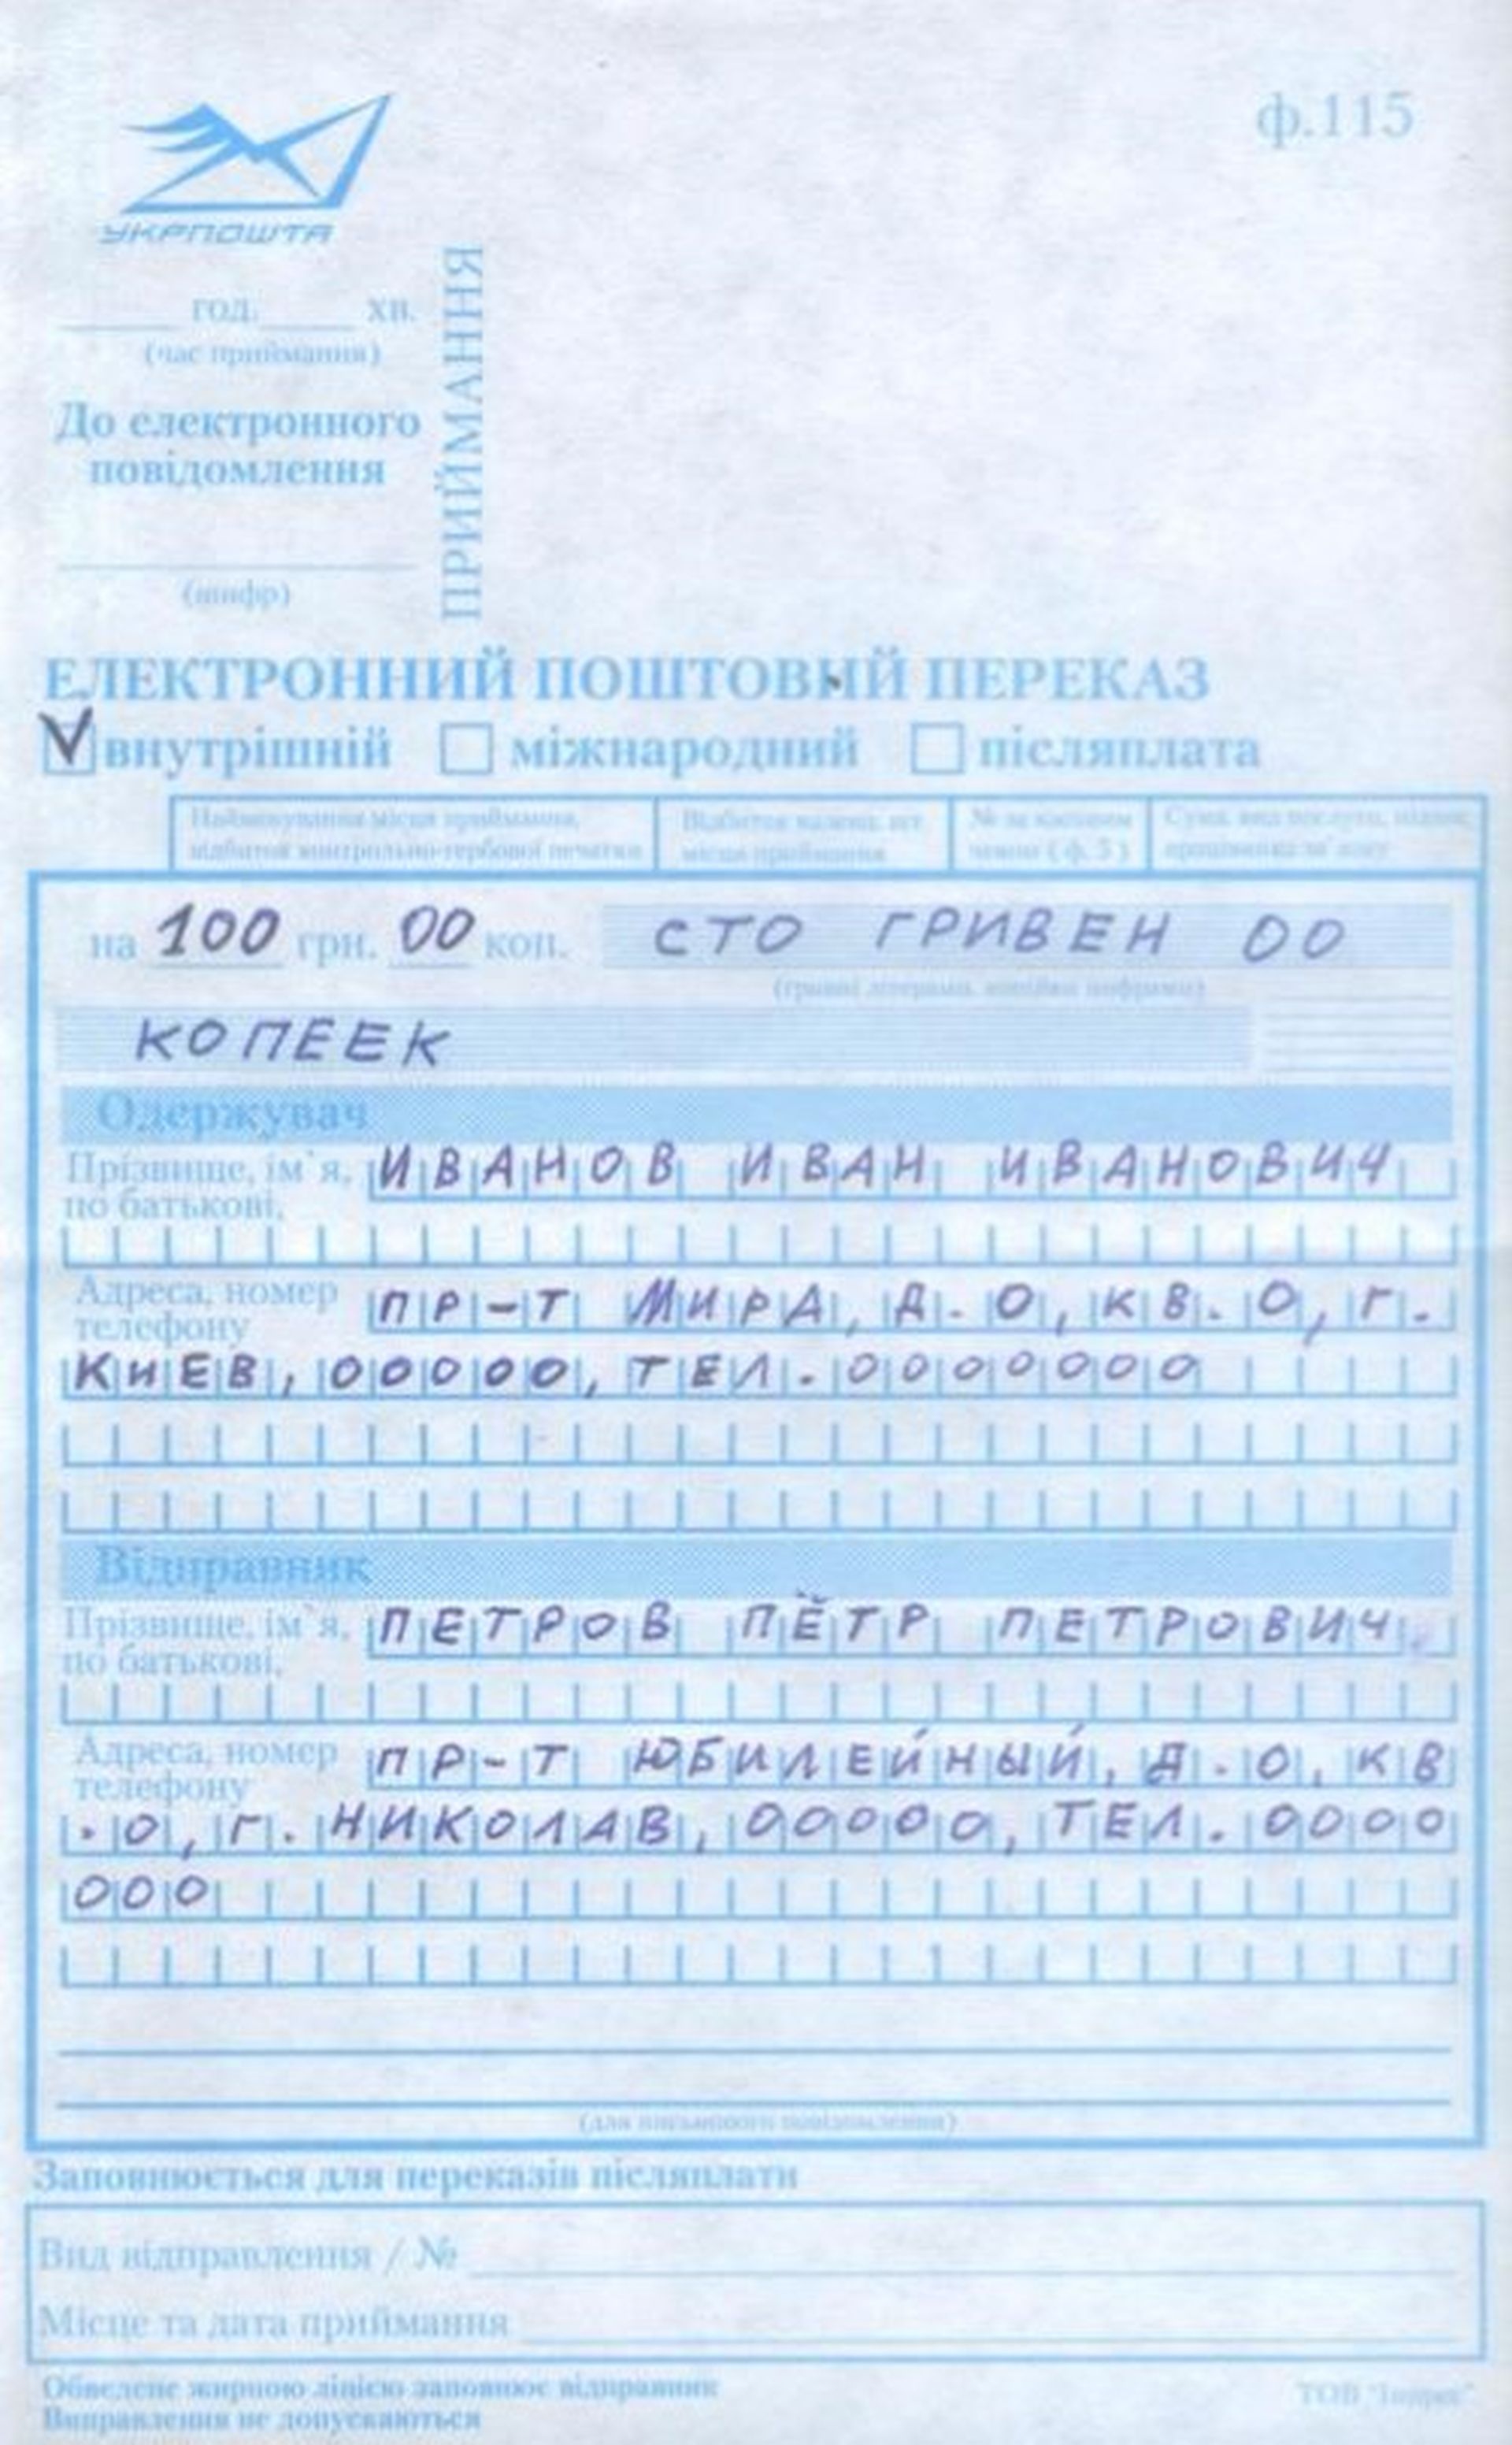 ф.115
УКРПОШТА
год. хв.
(час приймання)
До електронного
повідомлення
(шифр)
ПРИЙМАННЯ
ЕЛЕКТРОННИЙ ПОШТОВИЙ ПЕРЕКАЗ
V внутрішній міжнародний післяплата
Найменування місця приймання, Відбиток календ. шт. № за касовим Сума, вид послуги, підпис
відбиток контрольно-гербової печатки місця приймання чеком ( ф. 5 ) працівника зв`язку
на 100 грн. 00 коп. СТО ГРИВЕН 00
(гривні літерами, копійки цифрами)
КОПЕЕК
Одержувач
Прізвище, ім`я, ИВАНОВ ИВАН ИВАНОВИЧ
по батькові,
Адреса, номер ПР-Т МИРА, Д.0, КВ.0, Г.
телефону
КИЕВ, 00000, ТЕЛ.0000000
Відправник
Прізвище, ім`я, ПЕТРОВ ПЁТР ПЕТРОВИЧ
по батькові,
Адреса, номер ПР-Т ЮБИЛЕЙНЫЙ, Д.0, КВ
телефону
.0, Г. НИКОЛАВ, 00000, ТЕЛ.0000
000
(для письмового повідомлення)
Заповнюється для переказів післяплати
Вид відправлення / №
Місце та дата приймання
Обведене жирною лінією заповнює відправник
Виправлення не допускаються
ТОВ "Індрек"